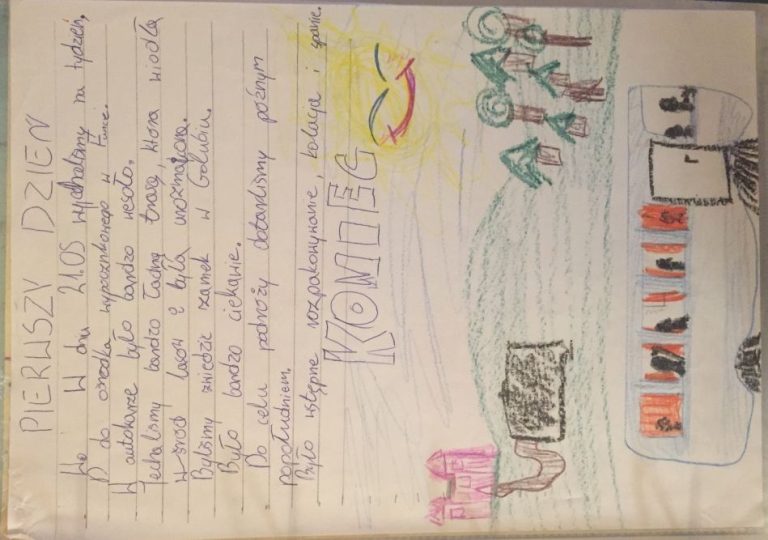 PIERWSZY DZIEŃ
W dniu 21.05 wyjechaliśmy na tydzień,
do ośrodka wypoczynkowego w Funce.
W autokarze było bardzo wesoło.
Jechaliśmy bardzo ładną trasą, która wiodła
wśród lasów i była urozmaicona.
Byliśmy zwiedzić zamek w Golubiu.
Było bardzo ciekawie.
Do celu podróży dotarliśmy późnym
popołudniem.
Było wstępne rozpakowywanie, kolacja i spanie.
KONIEC